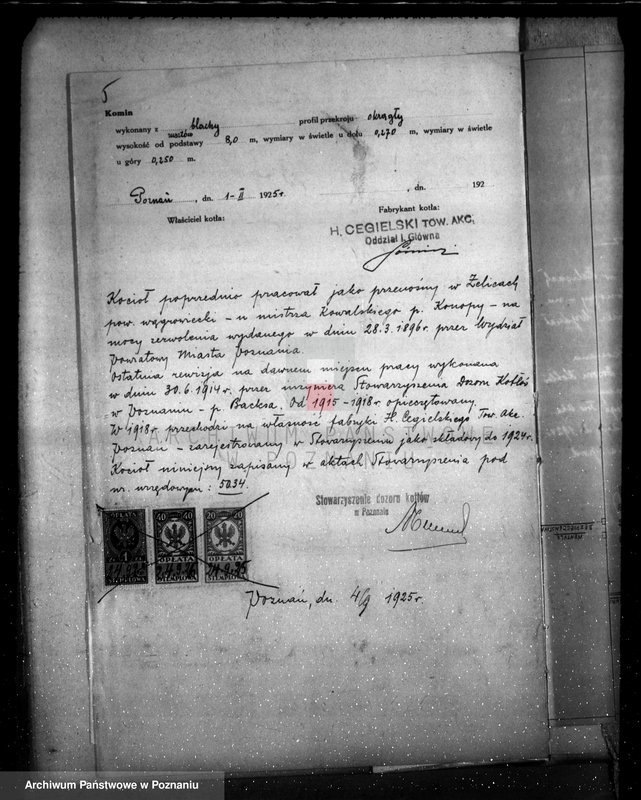 5
Komin
wykonany z blachy profil przekroju okrągły
wysokość od podstawy 8,0 m, wymiary w świetle u dołu 0,270 m, wymiary w świetle
u góry 0,250 m.
Poznań, dn. 1-II 1925r , dn. 192
Właściciel kotła: Fabrykant kotła:
H. CEGIELSKI TOW. AKC.
Oddział I. Główna
Kocioł poprzednio pracował jako przenośny w Żelicach
pow. wągrowiecki - u mistrza Kowalskiego p. Konopy - na
mocy zezwolenia wydanego w dniu 28.3.1896r. przez Wydział
Powiatowy Miasta Poznania.
Ostatnia rewizja na dawnem miejscu pracy wykonana
w dniu 30.6.1914r. przez inżyniera Stowarzyszenia Dozoru Kotłów
w Poznaniu - p. Backsa. Od 1915-1918r. opieczętowany.
W 1918r. przechodzi na własność fabryki H. Cegielskiego Tow. Akc.
Poznań - zarejestrowany w Stowarzyszeniu jako składowy do 1924r.
Kocioł niniejszy zapisany w aktach Stowarzyszenia pod
nr. urzędowym: 5034.
Stowarzyszenie dozoru kotłów
w Poznaniu
OPŁATA 40 40 20 20
OPŁATA OPŁATA
STEMPLOWA STEMPLOWA
Poznań, dn. 4/9 1925r.
ARCHIWUM PAŃSTWOWE
W POZNANIU
Archiwum Państwowe w Poznaniu